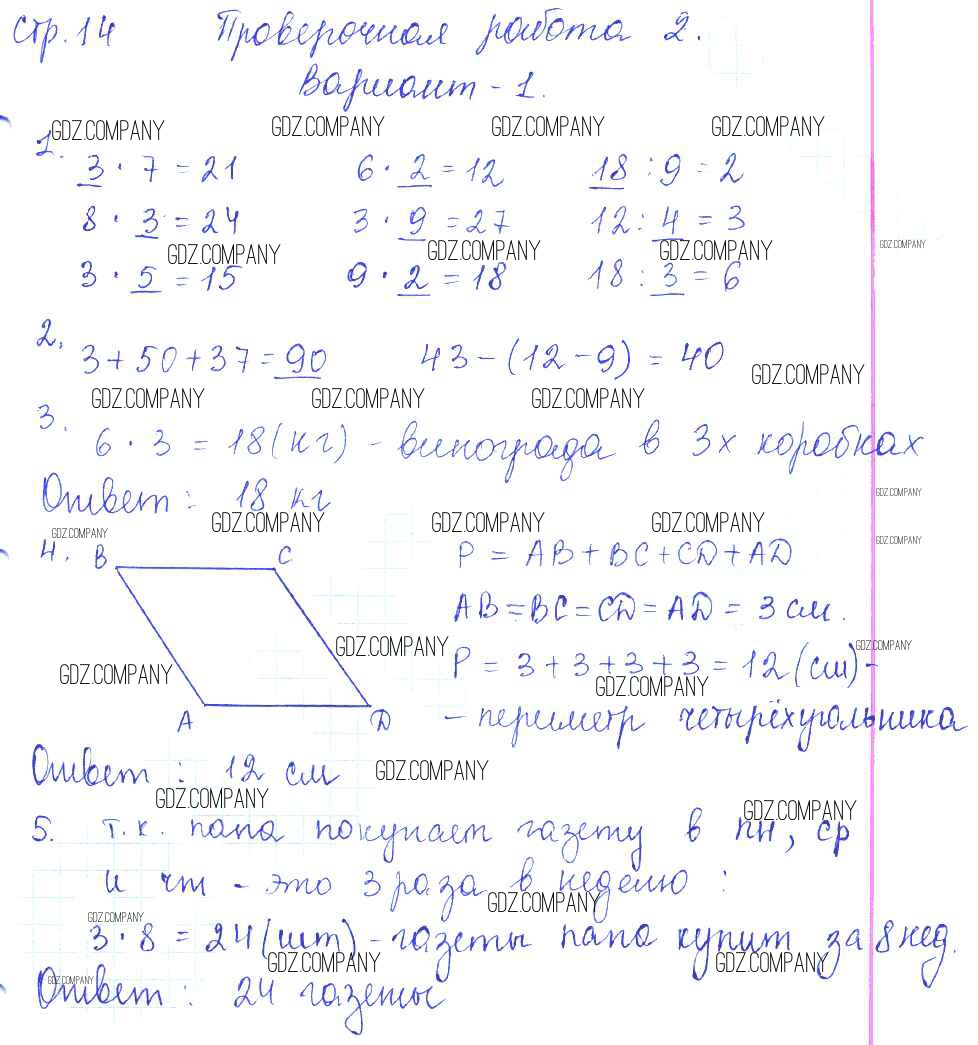 стр. 14 Проверочная работа 2.
Вариант - 1.
GDZ.COMPANY GDZ.COMPANY GDZ.COMPANY GDZ.COMPANY
1.
3 · 7 = 21 6 · 2 = 12 18 : 9 = 2
8 · 3 = 24 3 · 9 = 27 12 : 4 = 3
GDZ.COMPANY GDZ.COMPANY GDZ.COMPANY GDZ.COMPANY
3 · 5 = 15 9 · 2 = 18 18 : 3 = 6
2.
3 + 50 + 37 = 90 43 - (12 - 9) = 40
GDZ.COMPANY
GDZ.COMPANY GDZ.COMPANY GDZ.COMPANY
3.
6 · 3 = 18 (кг) - винограда в 3х коробках
Ответ : 18 кг
GDZ.COMPANY
GDZ.COMPANY GDZ.COMPANY GDZ.COMPANY
GDZ.COMPANY GDZ.COMPANY
4. B C P = AB + BC + CD + AD
AB = BC = CD = AD = 3 см.
GDZ.COMPANY GDZ.COMPANY
P = 3 + 3 + 3 + 3 = 12 (см) -
GDZ.COMPANY GDZ.COMPANY
A D - периметр четырёхугольника
Ответ : 12 см GDZ.COMPANY
GDZ.COMPANY GDZ.COMPANY
5. т.к. папа покупает газету в пн, ср
и чт - это 3 раза в неделю :
GDZ.COMPANY
GDZ.COMPANY
3 · 8 = 24 (шт) - газеты папа купит за 8 нед.
GDZ.COMPANY GDZ.COMPANY
GDZ.COMPANY
Ответ : 24 газеты